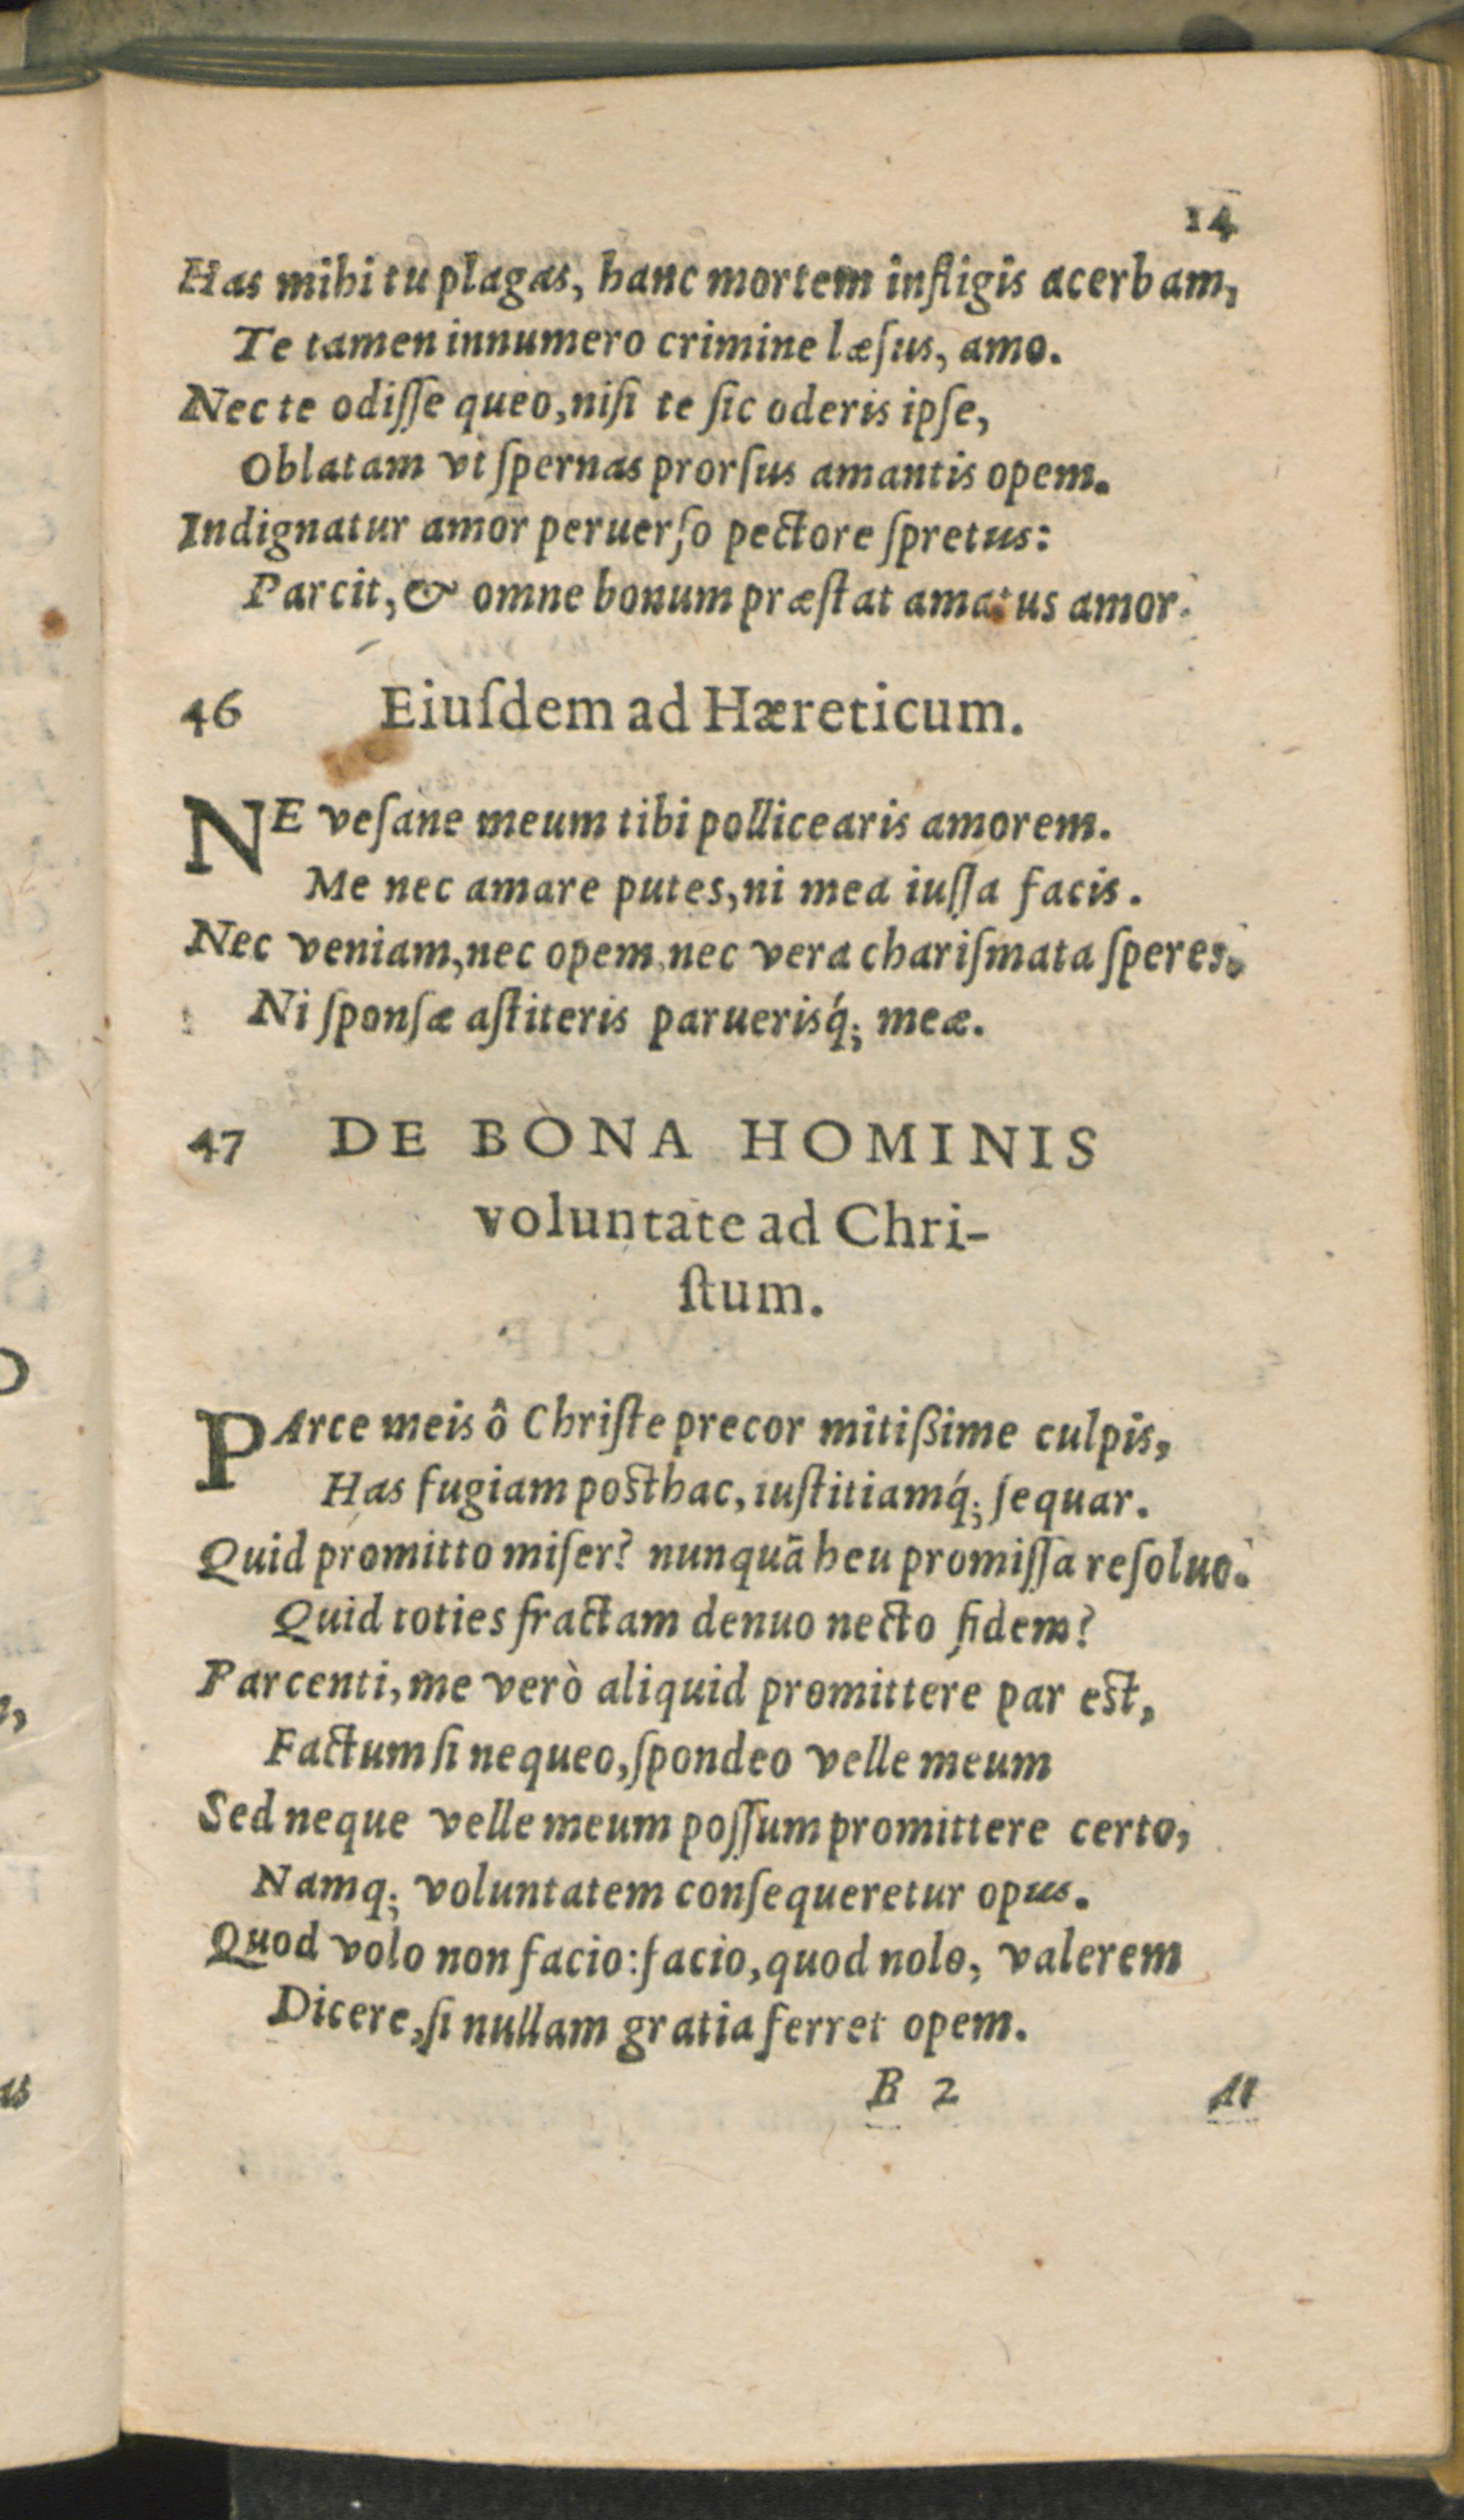 14
Has mihi tu plagas, hanc mortem infligis acerbam,
Te tamen innumero crimine læſus, amo.
Nec te odiſſe queo, niſi te ſic oderis ipſe,
Oblatam vt ſpernas prorſus amantis opem.
Indignatur amor peruerſo pectore ſpretus:
Parcit, & omne bonum præſtat amatus amor.
46 Eiuſdem ad Hæreticum.
NE veſane meum tibi pollicearis amorem.
Me nec amare putes, ni mea iuſſa facis.
Nec veniam, nec opem, nec vera chariſmata ſperes,
Ni ſponſæ aſtiteris paruerisq́; meæ.
47 DE BONA HOMINIS
voluntate ad Chri-
ſtum.
PArce meis ô Chriſte precor mitißime culpis,
Has fugiam poſthac, iuſtitiamq́; ſequar.
Quid promitto miſer? nunquā heu promiſſa reſoluo.
Quid toties fractam denuo necto fidem?
Parcenti, me verò aliquid promittere par eſt,
Factum ſi nequeo, ſpondeo velle meum
Sed neque velle meum poſſum promittere certo,
Namq; voluntatem conſequeretur opus.
Quod volo non facio: facio, quod nolo, valerem
Dicere, ſi nullam gratia ferret opem.
B 2 At